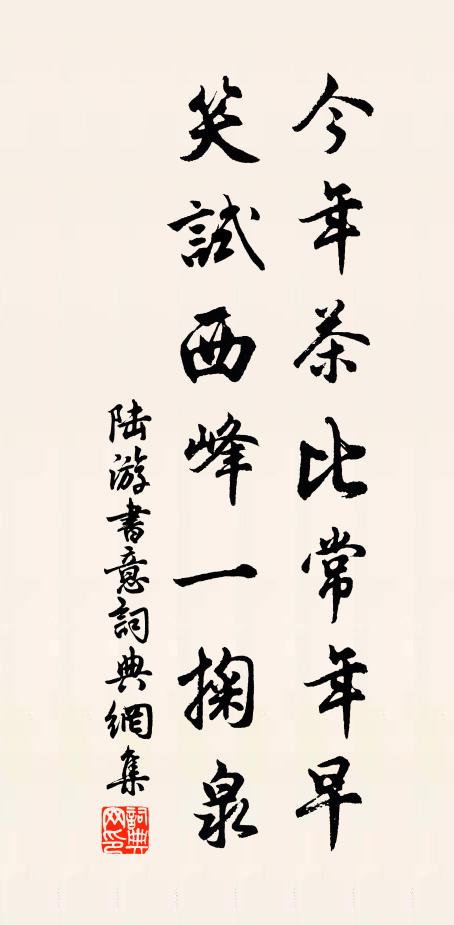 今年茶比常年早
笑試西峰一掬泉
陆游書意詞典網集
詞典
网印